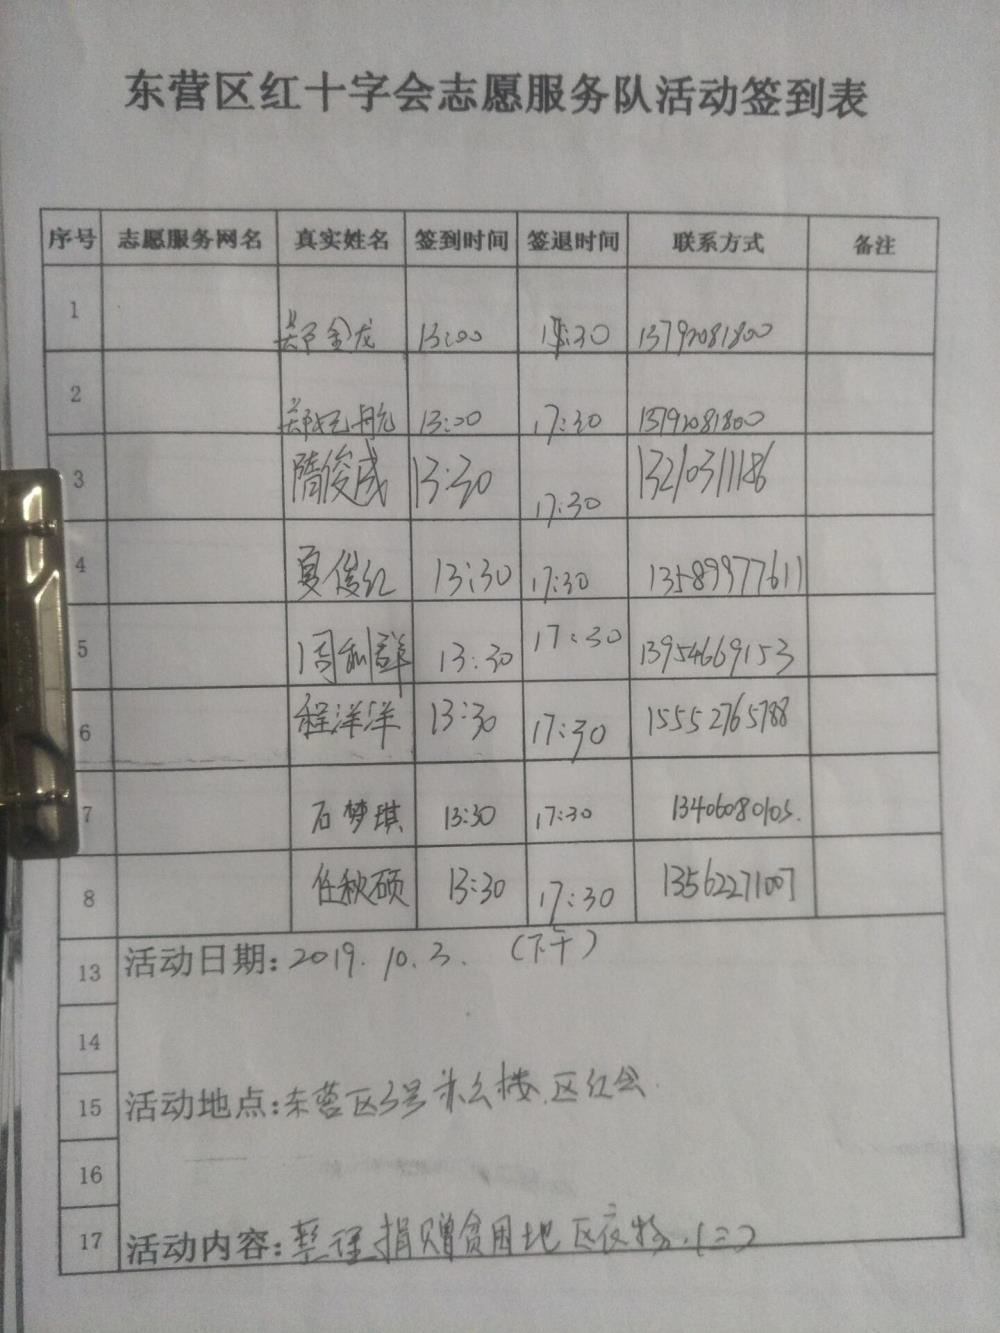 东营区红十字会志愿服务队活动签到表
序号 志愿服务网名 真实姓名 签到时间 签退时间 联系方式 备注
1 郑金龙 13:00 :30 13792081800
2 郑 航 13:00 17:30 13792081800
3 隋俊成 13:30 17:30 13210311186
4 夏俊红 13:30 17:30 13589977611
5 周利群 13:30 17:30 13954669153
6 程洋洋 13:30 17:30 15552765788
7 石梦琪 13:30 17:30 13406080105.
8 任秋硕 13:30 17:30 13562271007
13 活动日期: 2019.10.3. (下午)
14
15 活动地点: 东营区3号办公楼.区红会.
16
17 活动内容: 整理捐赠贫困地区衣物.(二)